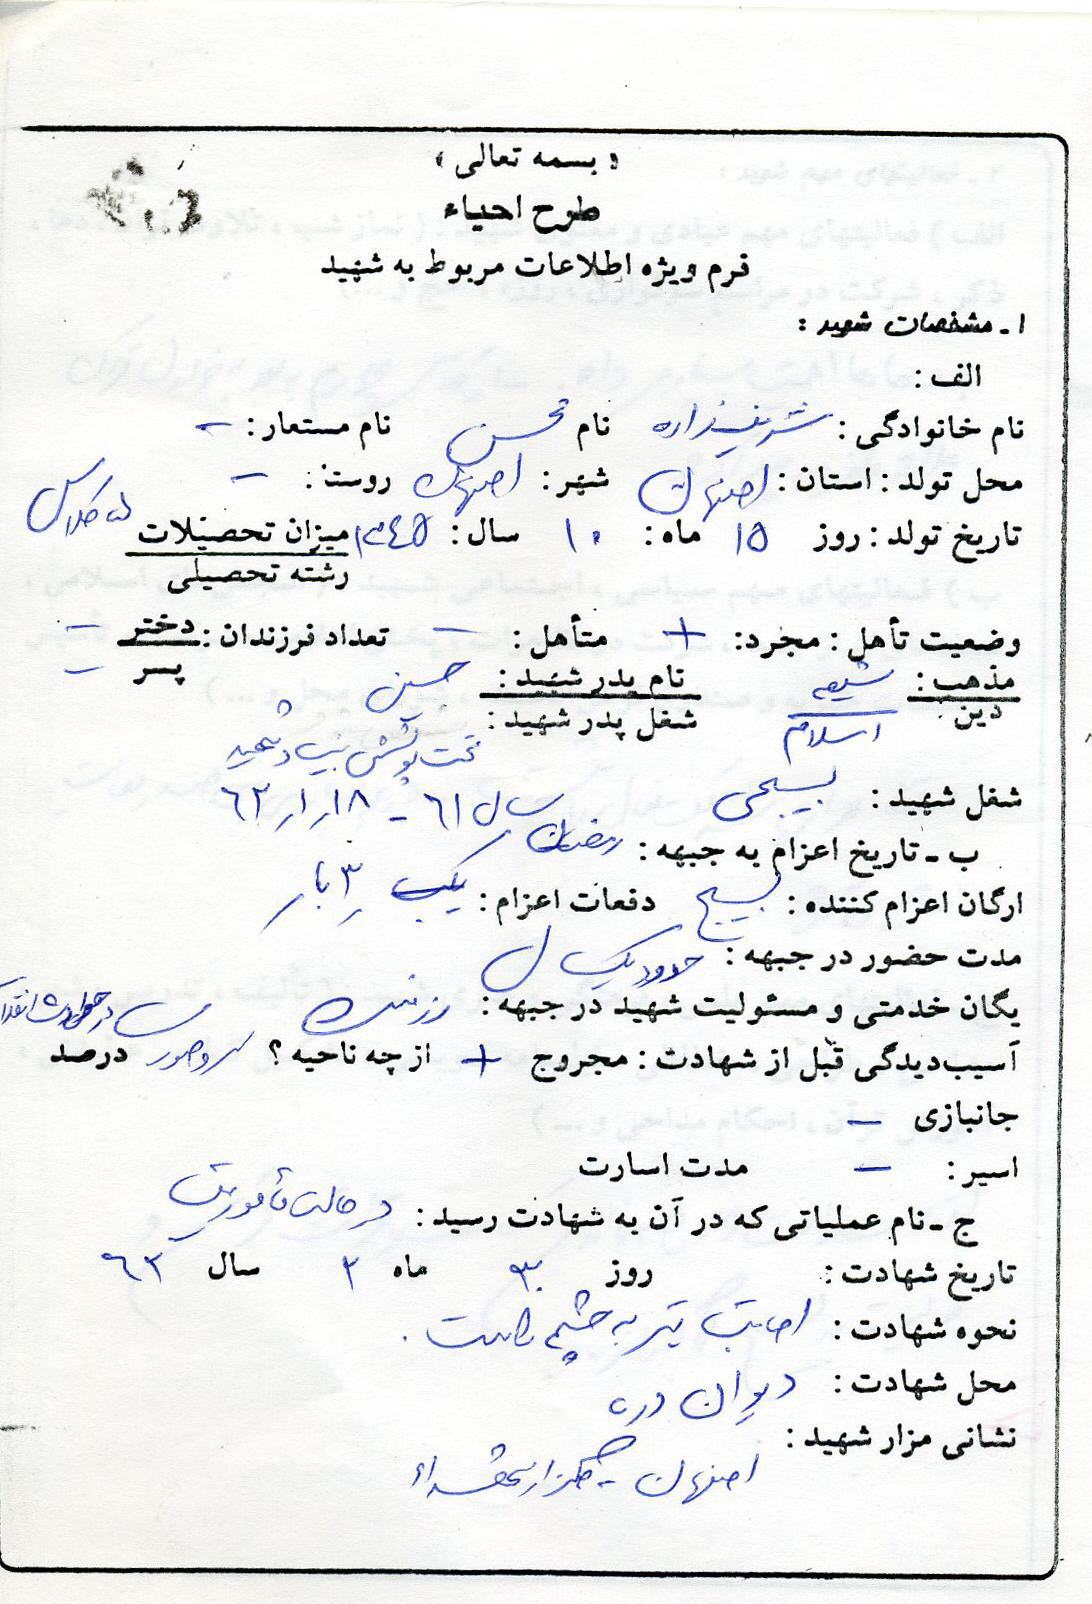 « بسمه تعالی »
طرح احیاء
فرم ویژه اطلاعات مربوط به شهید
۱ـ مشخصات شهید :
الف :
نام خانوادگی : شریف‌زاده نام محسن نام مستعار : -
محل تولد : استان : اصفهان شهر : اصفهان روستا : -
تاریخ تولد : روز ۱۵ ماه : ۱۰ سال : ۱۳۴۵ میزان تحصیلات کلاس
رشته تحصیلی
وضعیت تأهل : مجرد : + متأهل : - تعداد فرزندان : دختر -
مذهب : شیعه نام پدر شهید : حسین پسر -
دین اسلام شغل پدر شهید : تحت پوشش بنیاد شهید
شغل شهید : بسیجی
ب ـ تاریخ اعزام به جبهه : رمضان سال ۶۱ - ۶۲/۱/۱۸
ارگان اعزام کننده : بسیج دفعات اعزام : ۳ بار
مدت حضور در جبهه : حدود یک سال
یگان خدمتی و مسئولیت شهید در جبهه : رزمنده
آسیب‌دیدگی قبل از شهادت : مجروح + از چه ناحیه ؟ سر و صورت در حوادث انقلاب درصد
جانبازی -
اسیر : - مدت اسارت
ج ـ نام عملیاتی که در آن به شهادت رسید : در حالت مأموریت
تاریخ شهادت : روز ۳۰ ماه ۲ سال ۶۳
نحوه شهادت : اصابت تیر به چشم راست .
محل شهادت : دیوان دره
نشانی مزار شهید :
اصفهان - گلزار شهداء